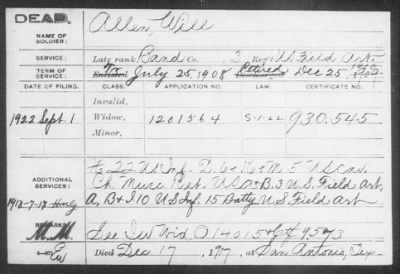 DEAD.
NAME OF SOLDIER: Allen, Will
SERVICE: Late rank Band Co. 3 Reg't U.S. Field Art.
TERM OF SERVICE: Enlisted July 25, 1908 Retired Dec 25,
DATE OF FILING. CLASS. APPLICATION NO. LAW. CERTIFICATE NO.
Invalid,
1922 Sept. 1 Widow, 1201564 5-1-22 930.545
Minor,
ADDITIONAL SERVICES: 22 U.S. Inf. & M 5 U.S. Cav
Ch. Muse Ret. U.S.A. B. 3 U.S. Field Art,
A, B & I 10 U.S. Inf. 15 Batty U.S. Field Art
REMARKS: M.M. See Wid O 14015 Ctf 9573
Died Dec 17, 1917, at San Antonio, Tex